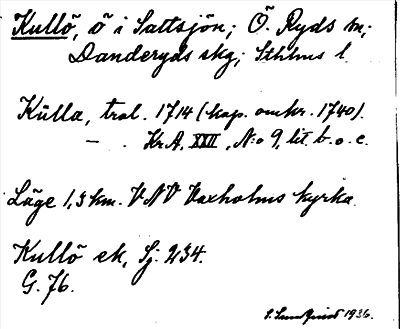 Kullö, ö i Saltsjön; Ö. Ryds sn;
Danderyds skg; Sthlms l.
Külla, tral. 1714 (kop. omkr. 1740).
— . Kr.A. XXII, N:o 9, lit. b. o. c.
Läge 1,3 km. VNV Vaxholms kyrka.
Kullö ek, Sj. 234.
G. 76.
1936.